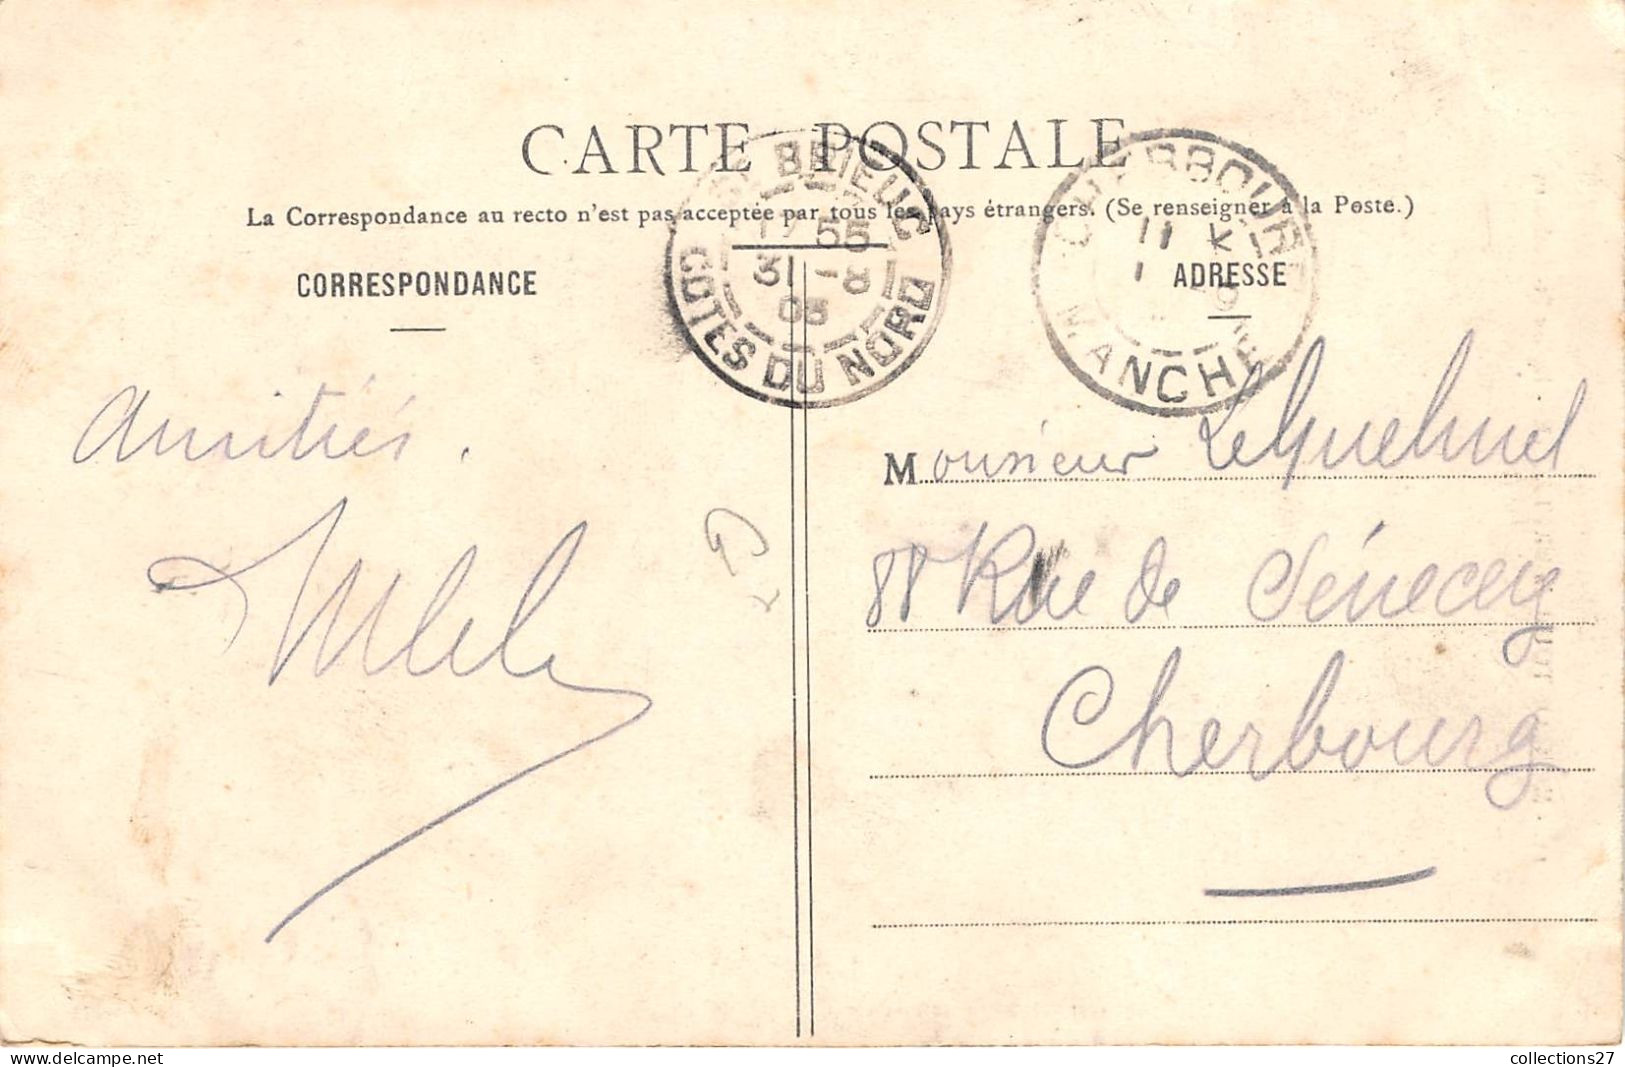 CARTE POSTALE
La Correspondance au recto n'est pas acceptée par tous les pays étrangers. (Se renseigner à la Poste.)
BRIEUC
17 55
31 -8
05
COTES DU NORD
CHERBOURG
11
MANCHE
CORRESPONDANCE
ADRESSE
Amitiés.
Monsieur
88 Rue de Sénecey
Cherbourg
collections27